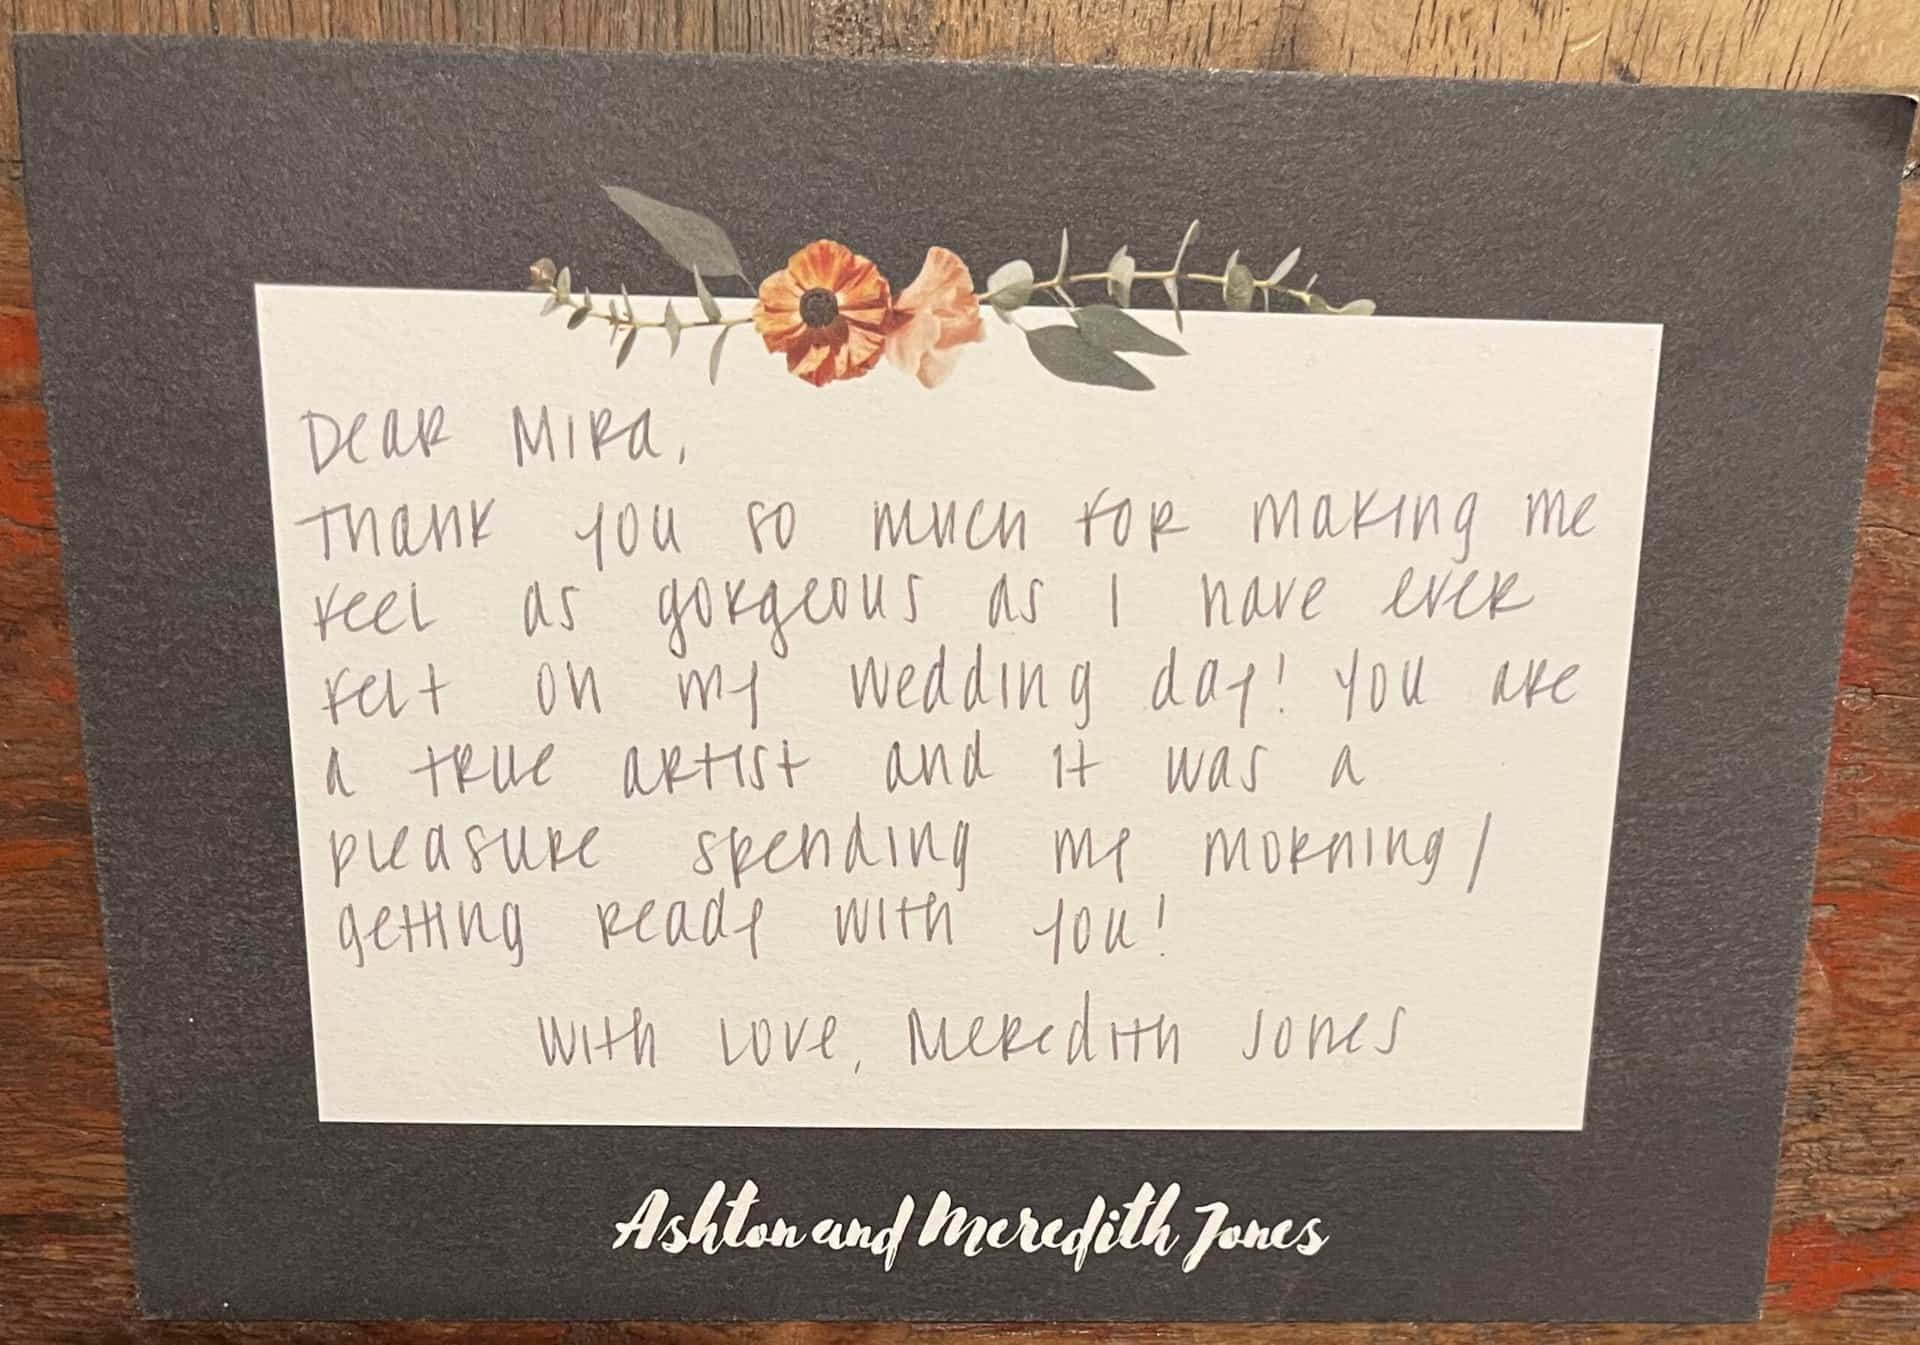 Dear Mira,
Thank you so much for making me
feel as gorgeous as I have ever
felt on my wedding day! You are
a true artist and it was a
pleasure spending my morning/
getting ready with you!
With love, Meredith Jones
Ashton and Meredith Jones